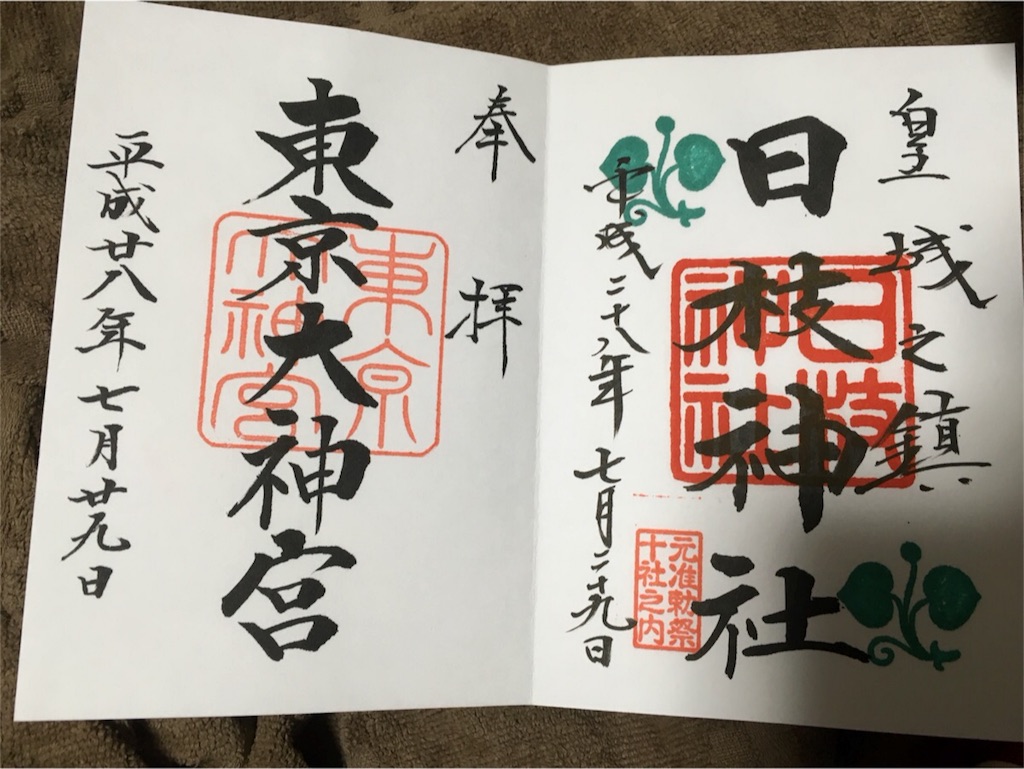 皇城之鎮
日枝神社
日枝
神社
元准勅祭
十社之内
平成二十八年七月二十九日
奉拝
東京大神宮
東京
大神宮
平成廿八年七月廿九日